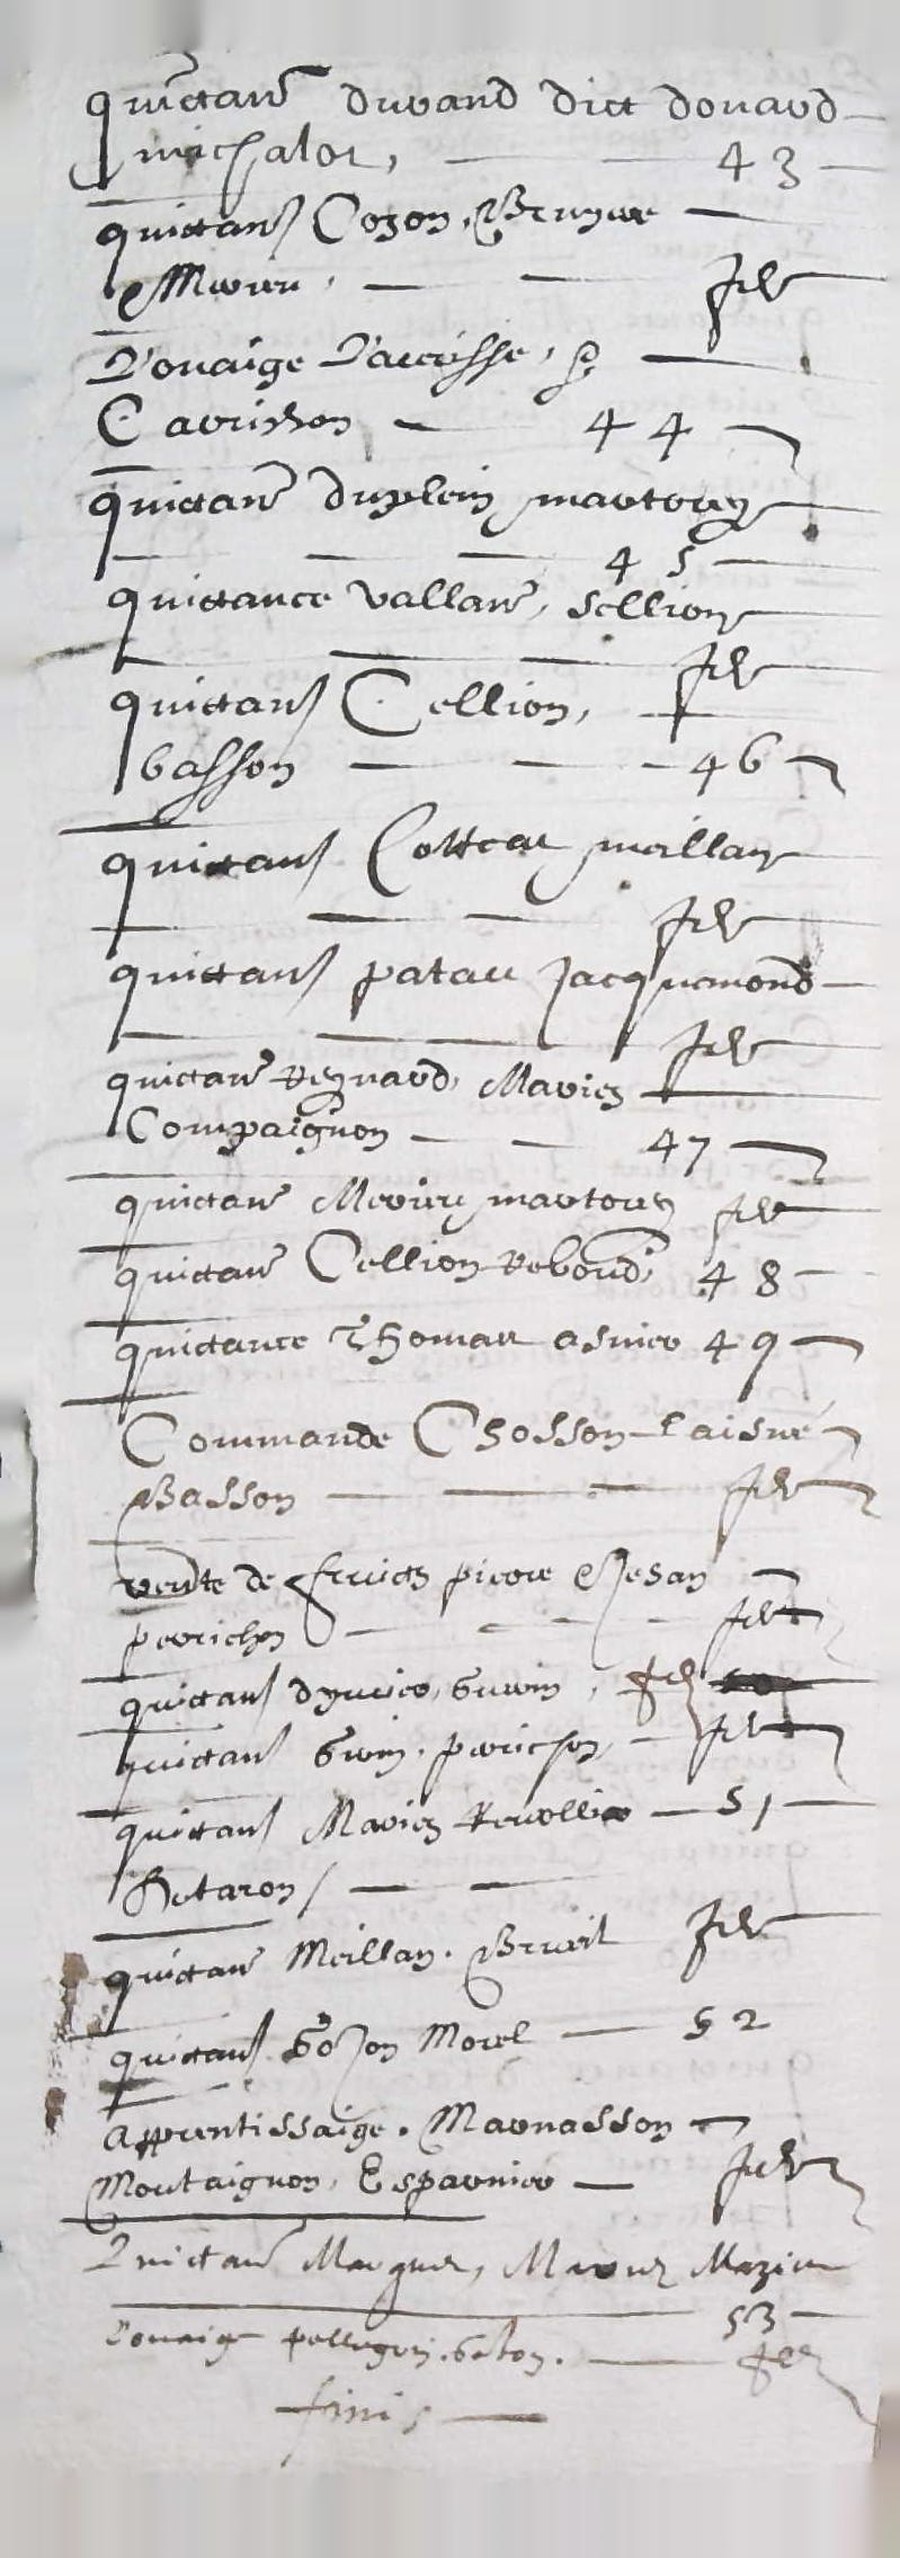 quictance durand dict donard
michalot, 43
quictans Cozon, Bruyere
Merieu, fol
Louaige Lacroisse, p
Carrichon 44
quictance duplein martorey
45
quictance vallans, Sellion
fol
quictans Cellion,
basson 46
quictans Cotteat meillan
fol
quictans patau Jacqumond
fol
quictans Reynard, Maries
Compaignon 47
quictans Merieu martorey fol
quictans Cellion Rebond, 48
quictance Thomas asnier 49
Commande Chosson laisné
Basson fol
vente de fruicts pierre Jesan
perrichon fol
quictans dyvico, Guerin, fol
quictans Guerin, perrichon, fol
quictans Maries Revollier 51
Rotaron
quictans Meillan, Bruiel fol
quictans Gojon Morel 52
Apprentissaige. Marnasson
Montaignon, Esparnier fol
Quictans Magner, Marier Mazier
53
Louaige pellegrin. baton. fol
finis